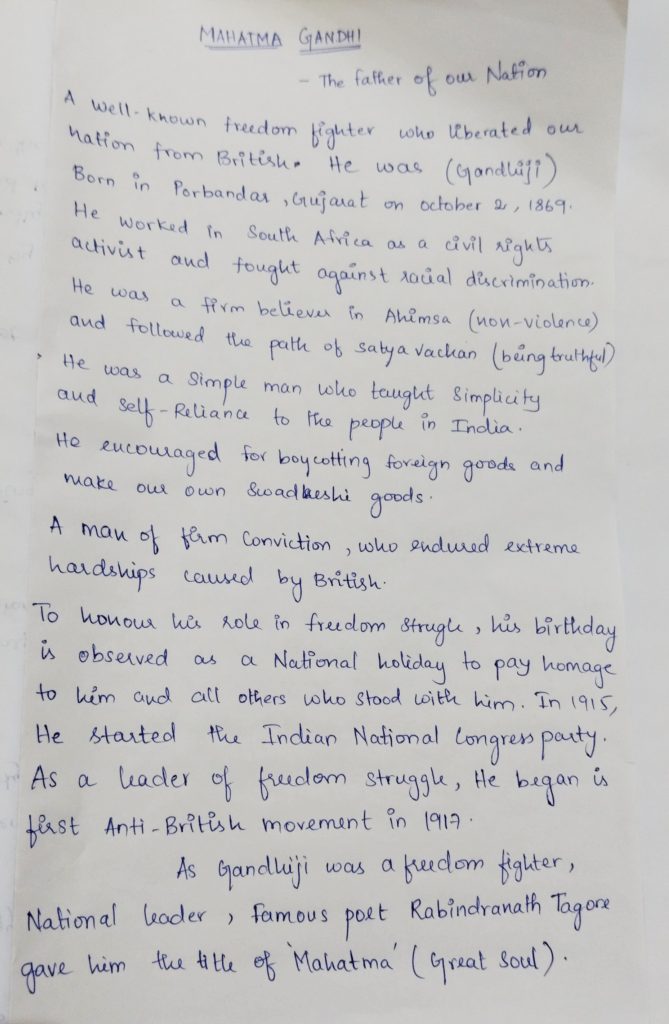 MAHATMA GANDHI
- The Father of our Nation
A well-known freedom fighter who liberated our
nation from British. He was (Gandhiji)
Born in Porbandar, Gujarat on october 2, 1869.
He worked in South Africa as a civil rights
activist and fought against racial discrimination.
He was a firm believer in Ahimsa (non-violence)
and followed the path of satya vachan (being truthful)
He was a Simple man who taught Simplicity
and self-Reliance to the people in India.
He encouraged for boycotting foreign goods and
make our own Swadheshi goods.
A man of firm Conviction, who endured extreme
hardships caused by British.
To honour his role in freedom strugle, his birthday
is observed as a National holiday to pay homage
to him and all others who stood with him. In 1915,
He started the Indian National Congress party.
As a leader of freedom struggle, He began is
first Anti-British movement in 1917.
As Gandhiji was a freedom fighter,
National leader, Famous poet Rabindranath Tagore
gave him the title of 'Mahatma' (Great Soul).